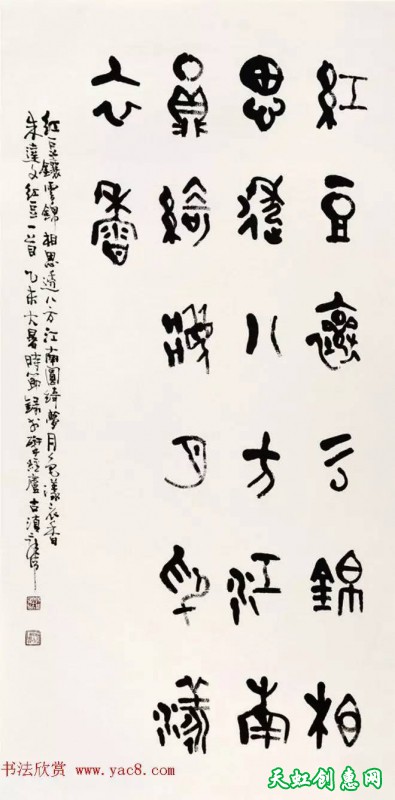 紅豆鑲云錦相
思透八方江南
圓綺夢月色漾
衣香
紅豆鑲雲錦相思透八方江南圓綺夢月色漾衣香
朱達文紅豆一首乙未大暑時節錄於研經廬古滇
书法欣赏 www.yac8.com
天虹创惠网